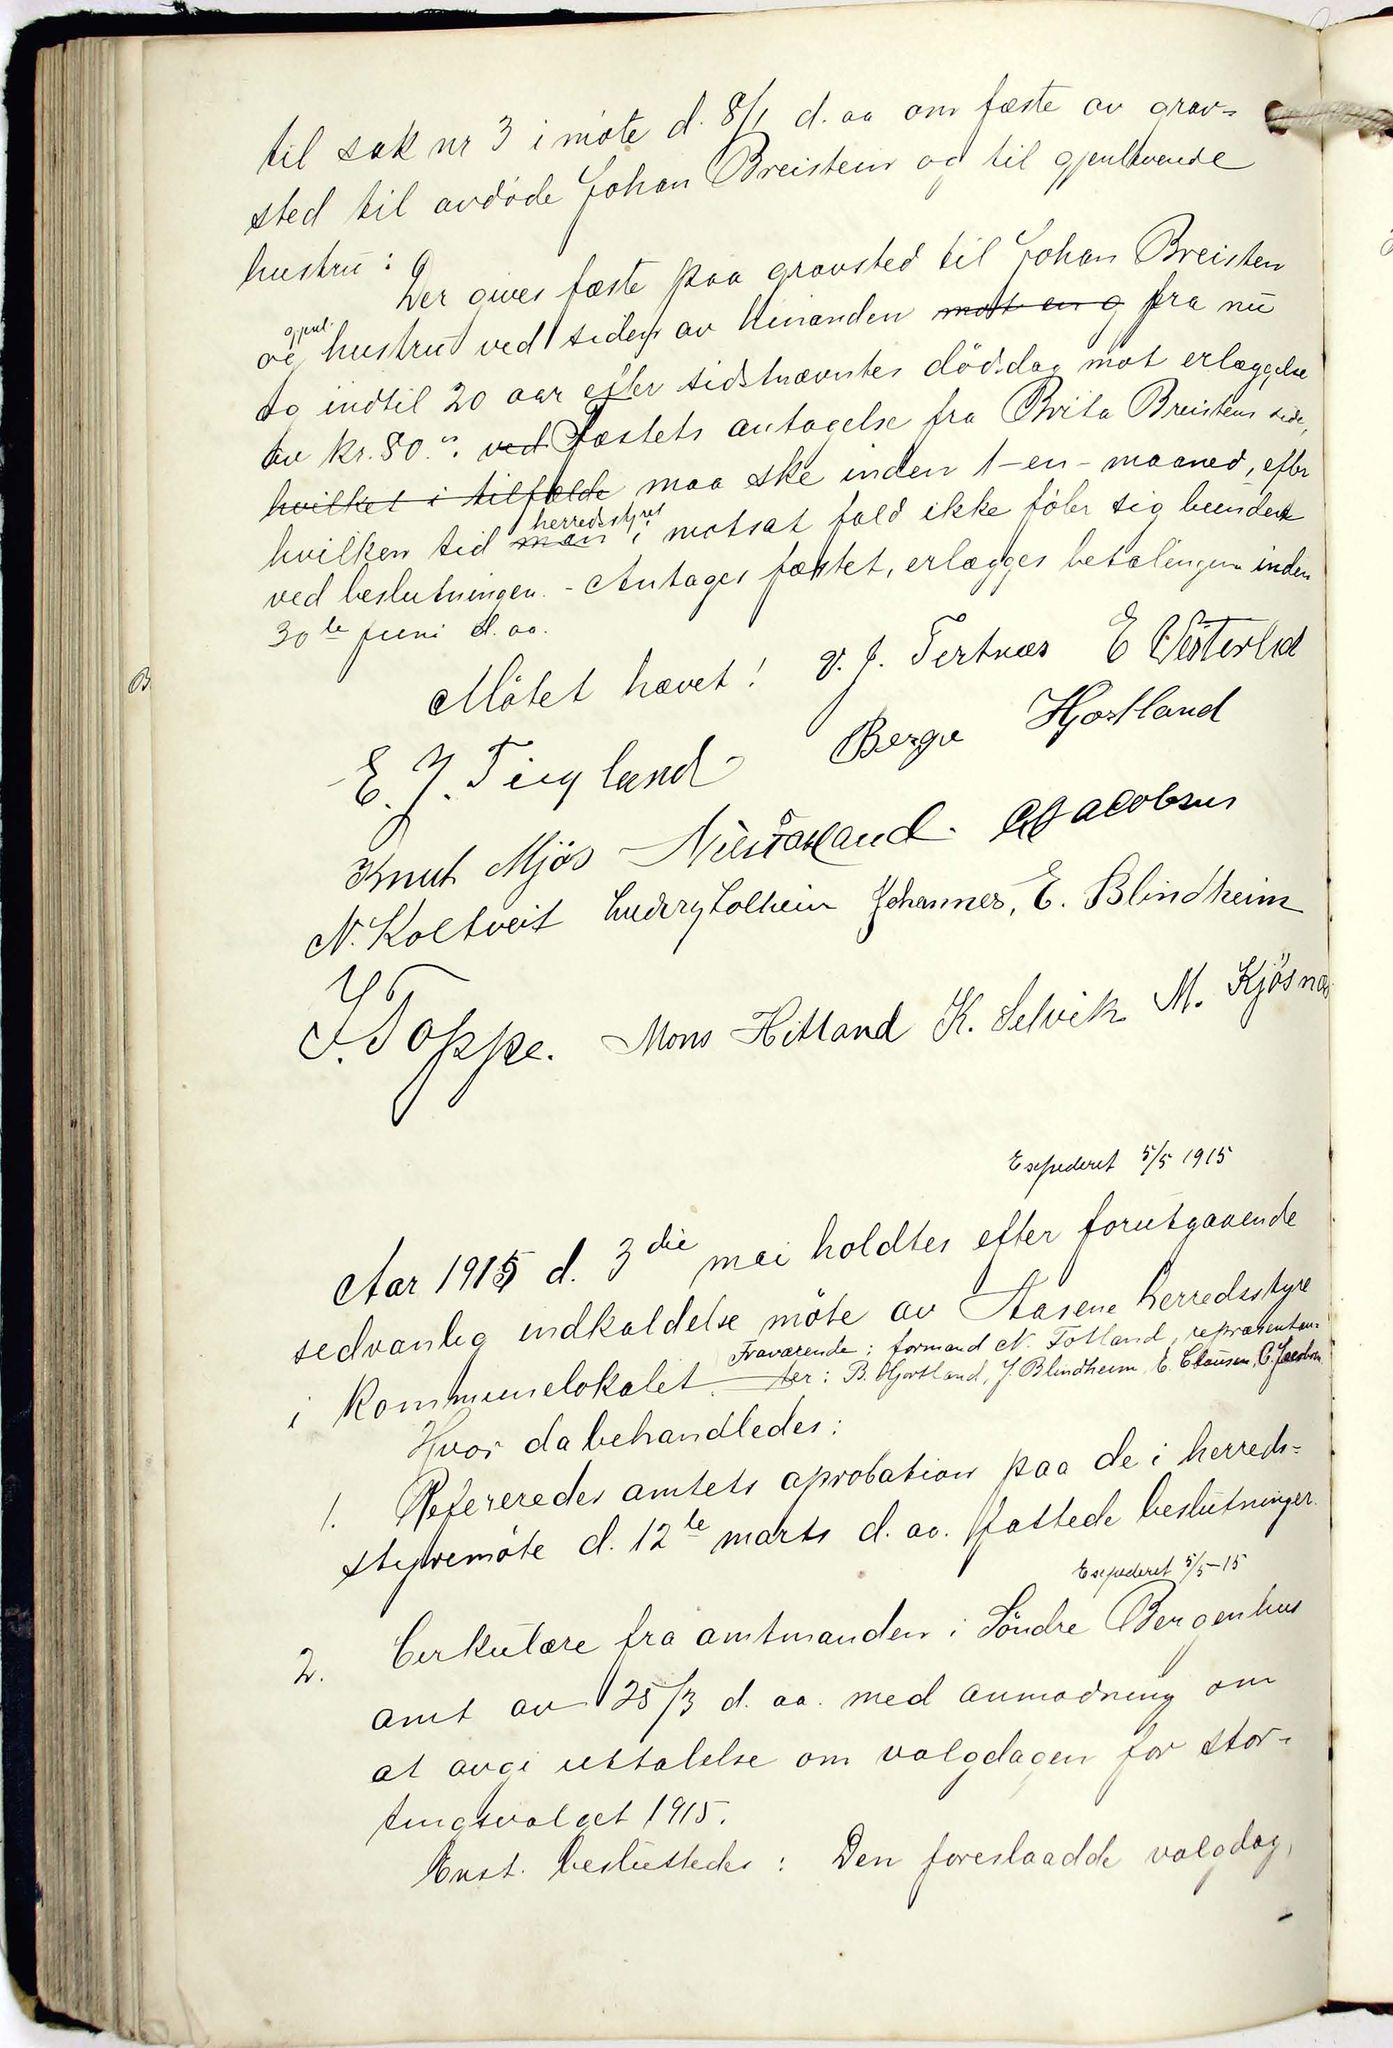 til sak nr 3 i møte d. 8/1 d. aa om fæste av grav=
sted til avdøde Johan Breistein og til gjenlevende
hustru:
Der gives fæste paa gravsted til Johan Breisten
og gjenl. hustru ved siden av hinanden mot en g fra nu
og indtil 20 aar efter sidstnævntes dödsdag mot erlæggelse
av kr. 80.- ved Fæstets antagelse fra Brita Breistens side,
hvilket i tilfælde maa ske inden 1-en-maaned, efter
hvilken tid man herredsstyret i motsat fald ikke föler sig bundet
ved beslutningen. - Antages fæstet, erlægges betalingen inden
30te juni d. aa.
Møtet hævet! V. J. Tertnæs E Vesterlid
E. J. Tuyland Berge Hjortland
Knut Mjös Nils Totland. C Jacobsen
N. Koltveit Ludvig Colhein Johannes, E. Blindheim
J. Toppe. Mons Hitland K. Selvik M. Kjösnæs
B.
Expederet 5/5 1915
Aar 1915 d. 3die mai holdtes efter forutgaaende
sedvanlig indkaldelse möte av Aasene herredsstyre
i kommunelokalet. Fraværende: formand N. Totland, repræsentan-
ter: B. Hjortland, J. Blindheim, E. Clausen, C. Jacobsen
Hvor da behandledes:
1. Refereredes amtets aprobation paa de i herreds=
styremöte d. 12te marts d. aa. fattede beslutninger.
Expederet 5/5-15
2. Cirkulære fra amtmanden i Söndre Bergenhus
amt av 25/3 d. aa. med anmodning om
at avgi uttalelse om valgdagen for stor-
tingsvalget 1915.
Enst. besluttedes: Den foreslaadde valgdag,